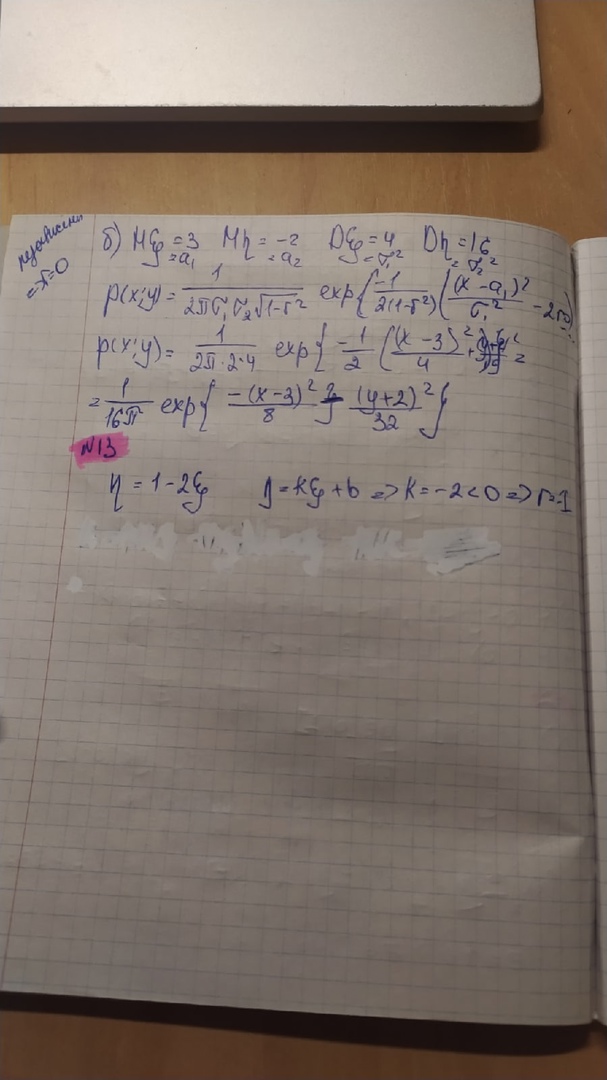 независимы
=> r=0
б) Mξ = 3 Mη = -2 Dξ = 4 Dη = 16
= a₁ = a₂ = σ₁² = σ₂²
p(x;y) = 1/(2πσ₁σ₂√(1-r²)) exp{ -1/(2(1-r²)) ( (x-a₁)²/σ₁² - 2r
p(x;y) = 1/(2π·2·4) exp{ -1/2 ( (x-3)²/4 + =
= 1/(16π) exp{ -(x-3)²/8 - (y+2)²/32 }
N13
η = 1-2ξ η = kξ + b => k = -2 < 0 => r=-1